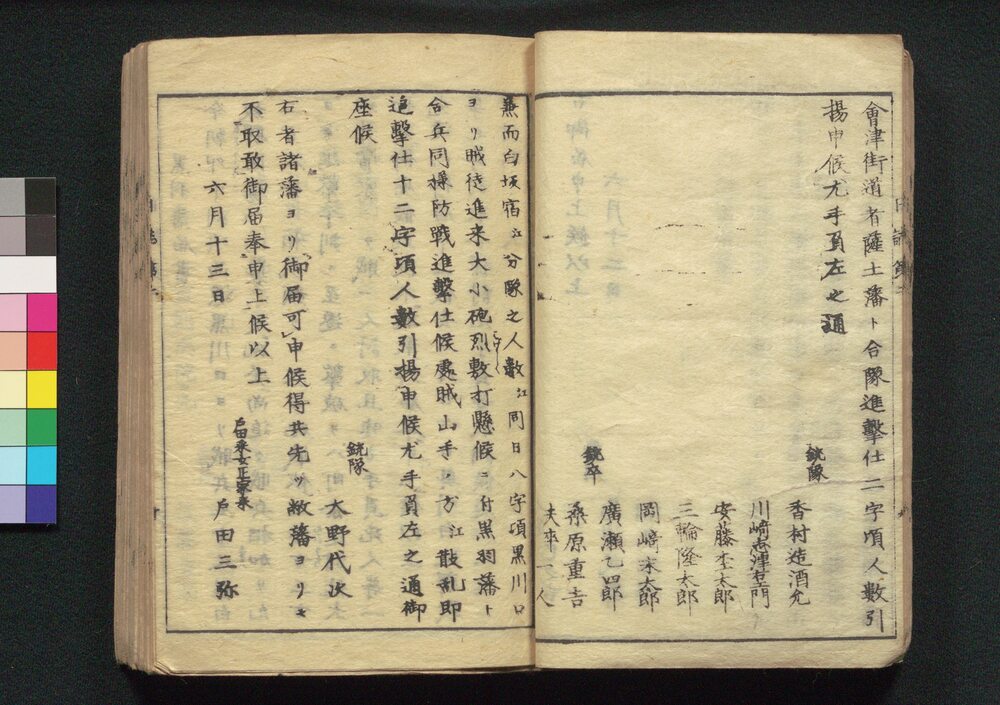 會津街道者薩土藩ト合隊進撃仕二字頃人數引
揚申候尤手負左之通
銃隊
香村造酒允
川﨑志津右エ門
安藤杢太郎
三輪隆太郎
岡﨑末太郎
銃卒
廣瀬乙四郎
桑原重吉
夫卒一人
兼而白坂宿江分隊之人數江同日八字頃黒川口
ヨリ賊徒進来大小砲烈敷打懸候ニ付黒羽藩ト
合兵同樣防戰進擊仕候處賊山手ノ方江散乱即
追擊仕十二字頃人數引揚申候尤手負左之通御
座候
銃隊
大野代次
右者諸藩ヨリ御届可申候得共先ツ敝藩ヨリモ
不取敢御届奉申上候以上
戸田采女正家来
六月十三日 戸田三弥